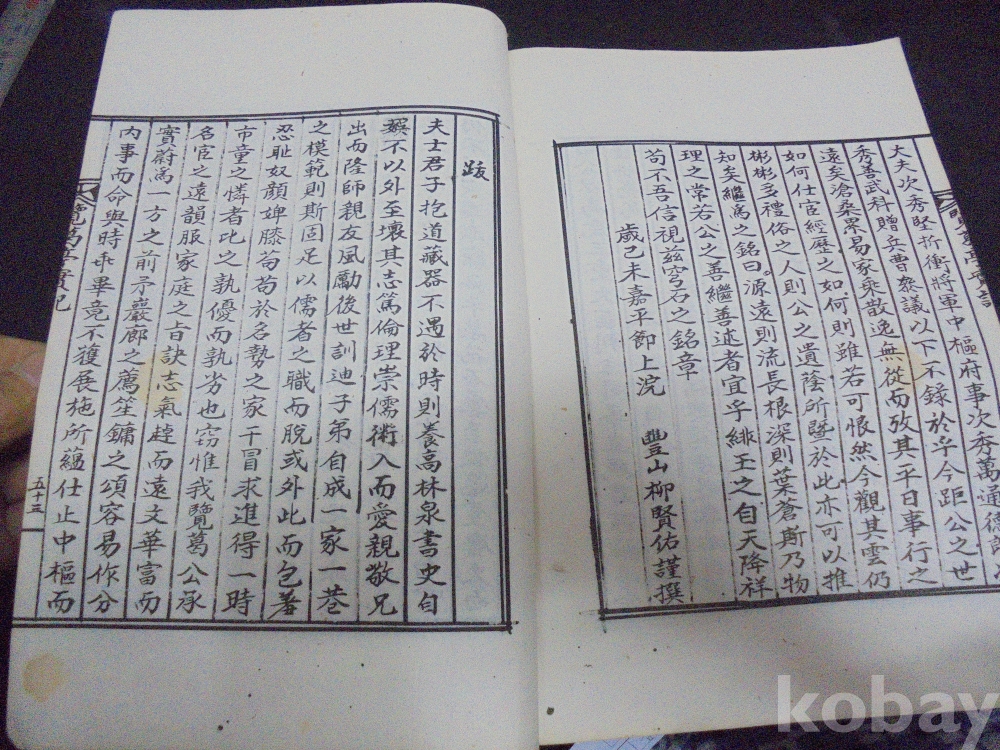 大夫次秀堅折衝將軍中樞府事次秀萬通德郎次
秀善武科贈兵曹叅議以下不錄於乎今距公之世
遠矣滄桑累易家乘散逸無從而攷其平日事行之
如何仕宦經歷之如何則雖若可恨然今觀其雲仍
彬彬多禮俗之人則公之遺蔭所曁於此亦可以推
知矣繼爲之銘曰源遠則流長根深則葉蒼斯乃物
理之常若公之善繼善述者宜乎緋玉之自天降祥
苟不吾信視玆穹石之銘章
歲己未嘉平節上浣 豐山柳賢佑謹撰
跋
夫士君子抱道藏器不遇於時則養高林泉書史自
娛不以外至壞其志篤倫理崇儒術入而愛親敬兄
出而隆師親友風勵後世訓迪子弟自成一家一巷
之模範則斯固足以儒者之職而脫或外此而包著
忍耻奴顔婢膝苟苟於名勢之家干冒求進得一時
市童之憐者比之孰優而孰劣也窃惟我覽葛公承
名宦之遠韻服家庭之旨訣志氣趠而遠文華富而
實蔚爲一方之前矛巖廊之薦笙鏞之頌容易作分
內事而命與時乖畢竟不獲展施所蘊仕止中樞而
覽葛亭實記
五十三
kobay